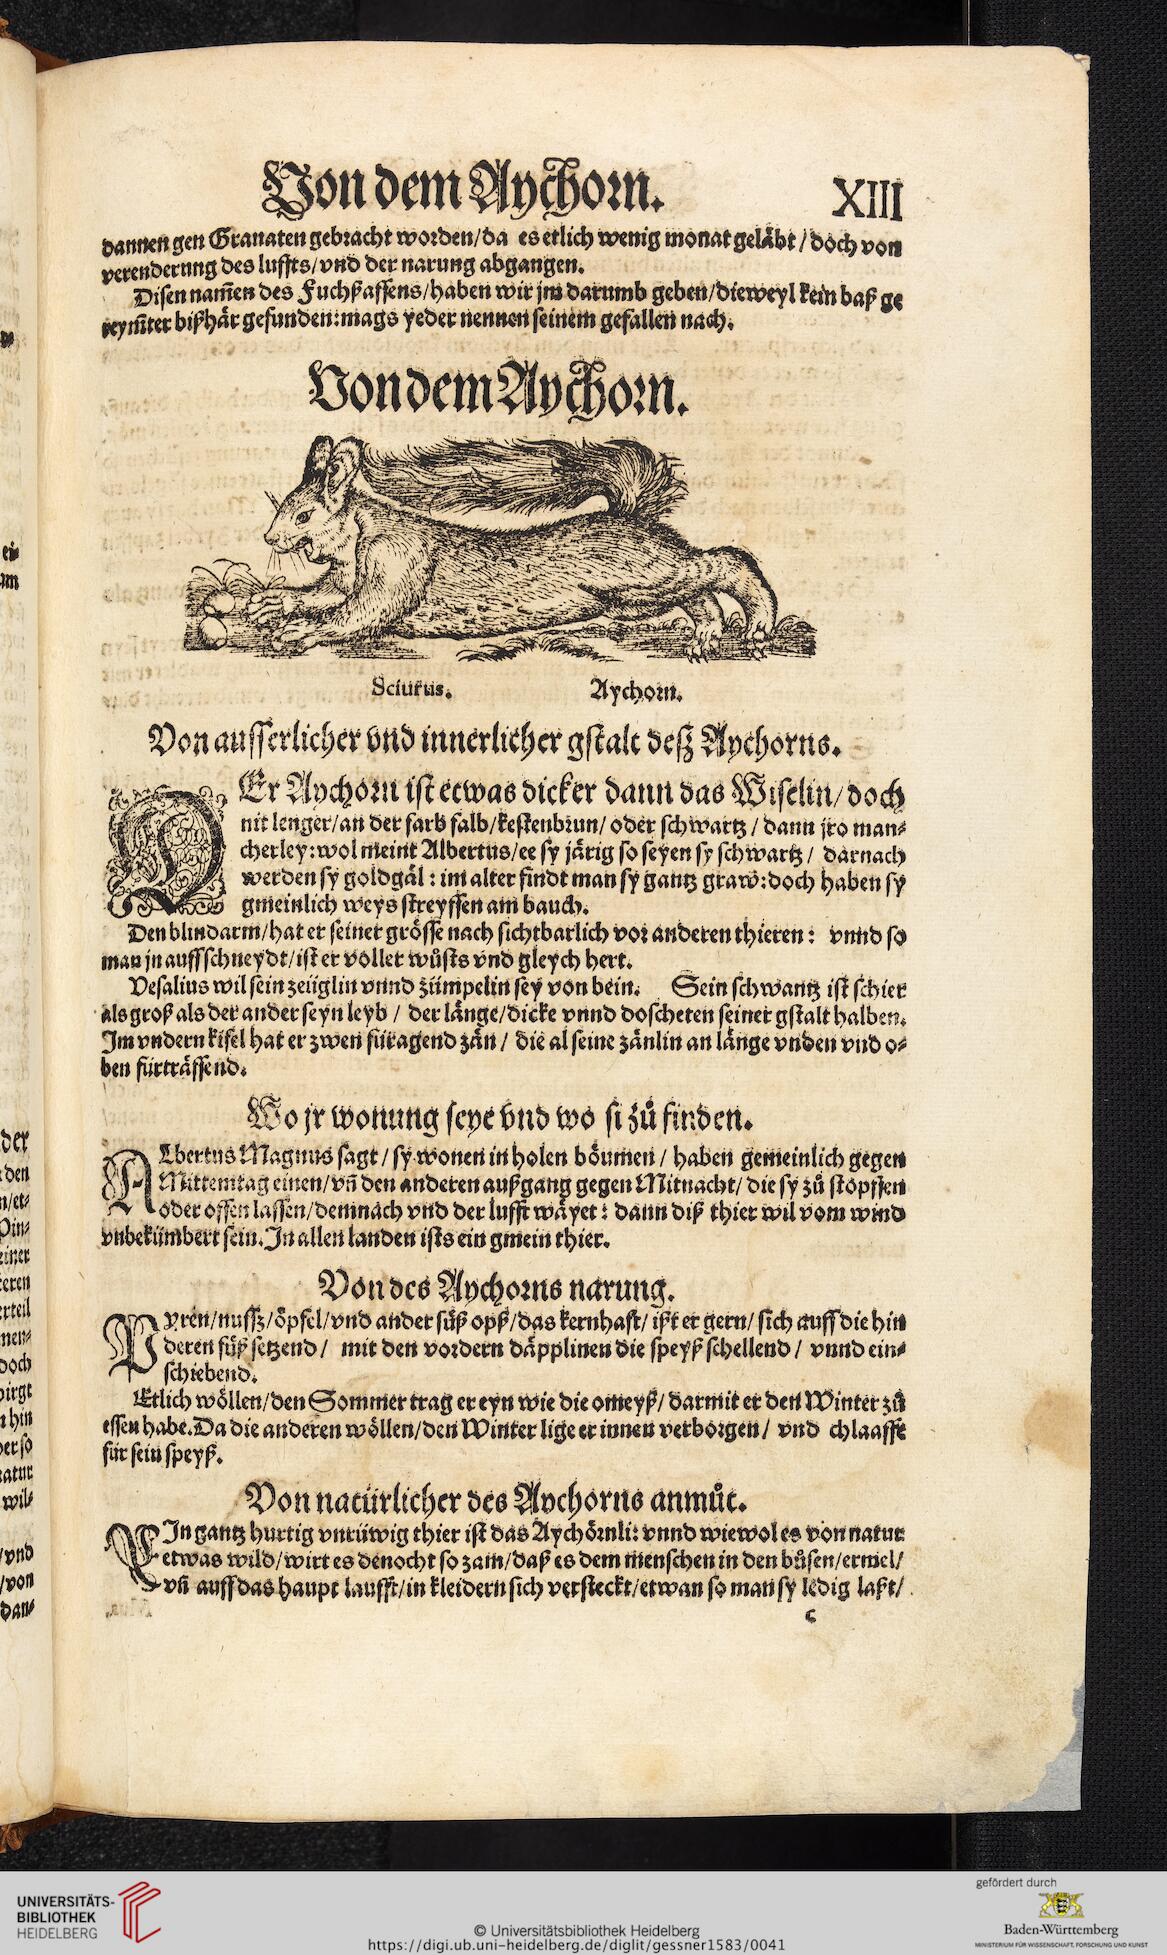 Von dem Aychorn. XIII
dannen gen Granaten gebracht worden/ da es etlich wenig monat geläbt / doch von
verenderung des luffts/ vnd der narung abgangen.
Disen nam̄en des Fuchßaffens/ haben wir jm darumb geben/ dieweyl kein baß ge
reym̄ter bißhär gefunden: mags yeder nennen seinem gefallen nach.
Von dem Aychorn.
Sciurus. Aychorn.
Von ausserlicher vnd innerlicher gstalt deß Aychorns.
DEr Aychorn ist etwas dicker dann das Wiselin/ doch
nit lenger/ an der farb falb/ kestenbrun/ oder schwartz / dann jro man-
cherley: wol meint Albertus/ ee sy järig so seyen sy schwartz / darnach
werden sy goldgäl : im alter findt man sy gantz graw: doch haben sy
gmeinlich weys streyffen am bauch.
Den blindarm/ hat er seiner grösse nach sichtbarlich vor anderen thieren : vnnd so
man jn auffschneydt/ ist er voller wůsts vnd gleych hert.
Vesalius wil sein zeüglin vnnd zümpelin sey von bein. Sein schwantz ist schier
als groß als der ander seyn leyb / der länge/ dicke vnnd doscheten seiner gstalt halben.
Im vndern kifel hat er zwen füragend zän / die al seine zänlin an länge vnden vnd o-
ben fürträffend.
Wo jr wonung seye vnd wo si zů finden.
ALbertus Magnus sagt / sy wonen in holen böumen / haben gemeinlich gegen
Mittemtag einen/ vn̄ den anderen außgang gegen Mitnacht/ die sy zů stopffen
oder offen lassen/ demnach vnd der lufft wäyet : dann diß thier wil vom wind
vnbekümbert sein. In allen landen ists ein gmein thier.
Von des Aychorns narung.
PYren/ nussz/ öpfel/ vnd ander süß opß/ das kernhafft/ ißt er gern/ sich auff die hin
deren füß setzend / mit den vordern däpplinen die speyß schellend / vnnd ein-
schiebend.
Etlich wöllen/ den Sommer trag er eyn wie die omeyß/ darmit er den Winter zů
essen habe. Da die anderen wöllen/ den Winter lige er innen verborgen / vnd chlaaffe
für sein speyß.
Von natürlicher des Aychorns anmůt.
EIn gantz hurtig vnrüwig thier ist das Aychörnli: vnnd wiewol es von natur
etwas wild/ wirt es denocht so zam/ daß es dem menschen in den bůsen/ ermel/
vn̄ auff das haupt laufft/ in kleidern sich versteckt/ etwan so man sy ledig laßt/
c
UNIVERSITÄTS-
BIBLIOTHEK
HEIDELBERG
© Universitätsbibliothek Heidelberg
https://digi.ub.uni-heidelberg.de/diglit/gessner1583/0041
gefördert durch
Baden-Württemberg
MINISTERIUM FÜR WISSENSCHAFT, FORSCHUNG UND KUNST